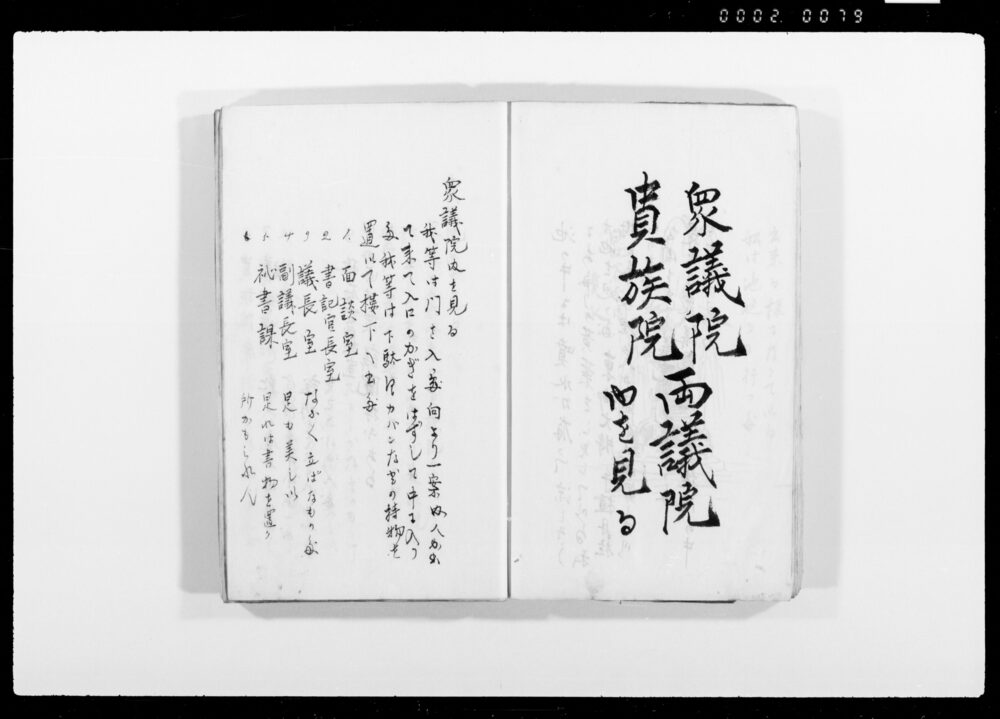 0002 0079
衆議院
貴族院
両議院
内を見る
衆議院内を見る
我等は門を入り向より一案内人が出
て来て入口のかぎをはずして中に入つ
我等は下駄カバンなどの持物を
置いて楼下へ出
1. 面談室
2. 書記官長室
3 議長室 なかく立ぱなもの
4 副議長室 是も美しい
5. 祕書課 是れは書物を置く
6